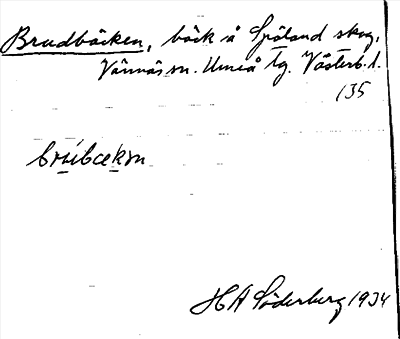 Brudbäcken, bäck å Spöland skog,
Vännäs sn. Umeå tg. Västerb. l.
135
brúbækən
H A Söderberg 1934